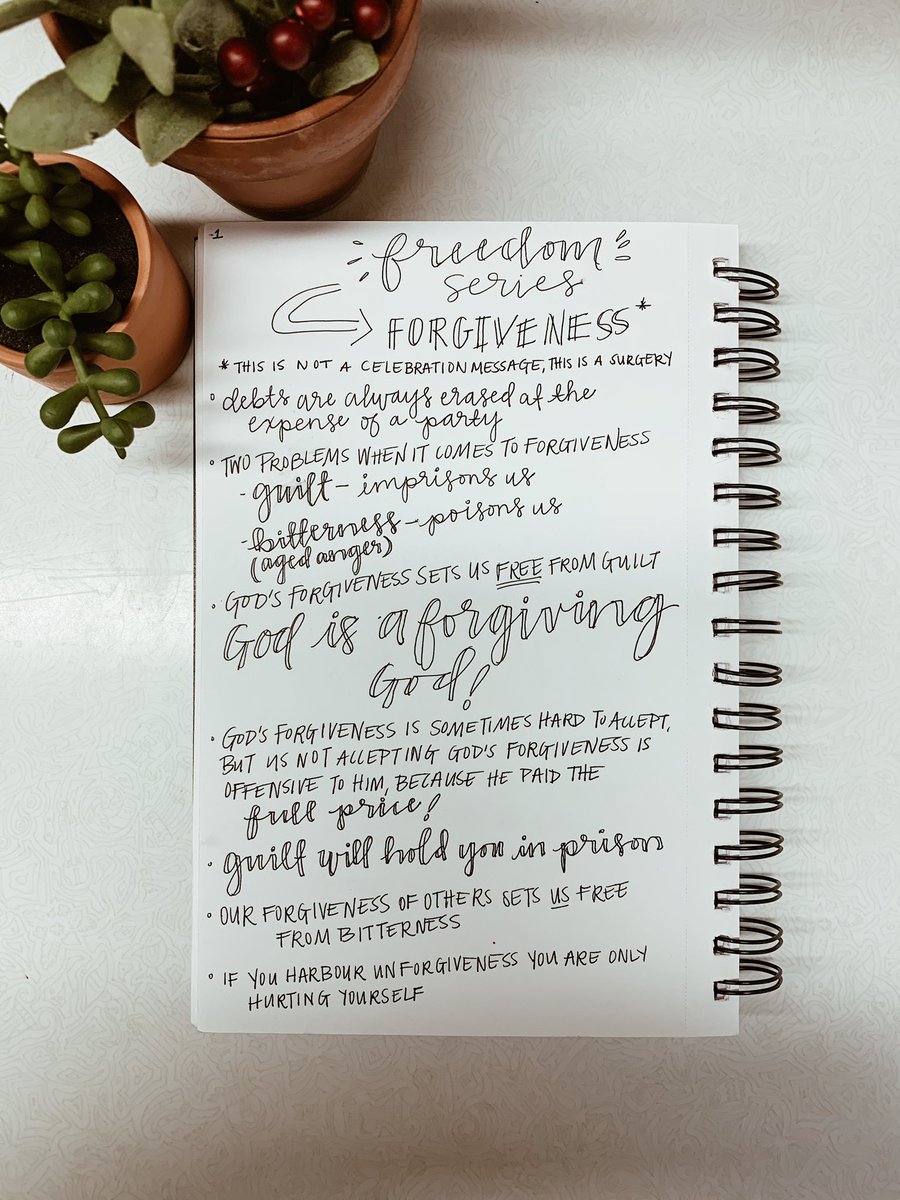 -1
freedom
series
FORGIVENESS*
* THIS IS NOT A CELEBRATION MESSAGE, THIS IS A SURGERY
° debts are always erased at the
expense of a party
° TWO PROBLEMS WHEN IT COMES TO FORGIVENESS
- guilt - imprisons us
- bitterness - poisons us
(aged anger)
° GOD'S FORGIVENESS SETS US FREE FROM GUILT
God is a forgiving
God!
° GOD'S FORGIVENESS IS SOMETIMES HARD TO ACCEPT,
BUT US NOT ACCEPTING GOD'S FORGIVENESS IS
OFFENSIVE TO HIM, BECAUSE HE PAID THE
full price!
° guilt will hold you in prison
° OUR FORGIVENESS OF OTHERS SETS US FREE
FROM BITTERNESS
° IF YOU HARBOUR UNFORGIVENESS YOU ARE ONLY
HURTING YOURSELF